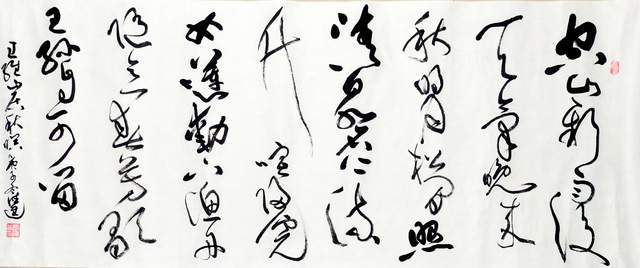 空山新雨後
天氣晚來
秋明月松間照
清泉石上流
竹喧歸浣
女蓮動下漁舟
随意春芳歇
王孫自可留
王維山居秋暝